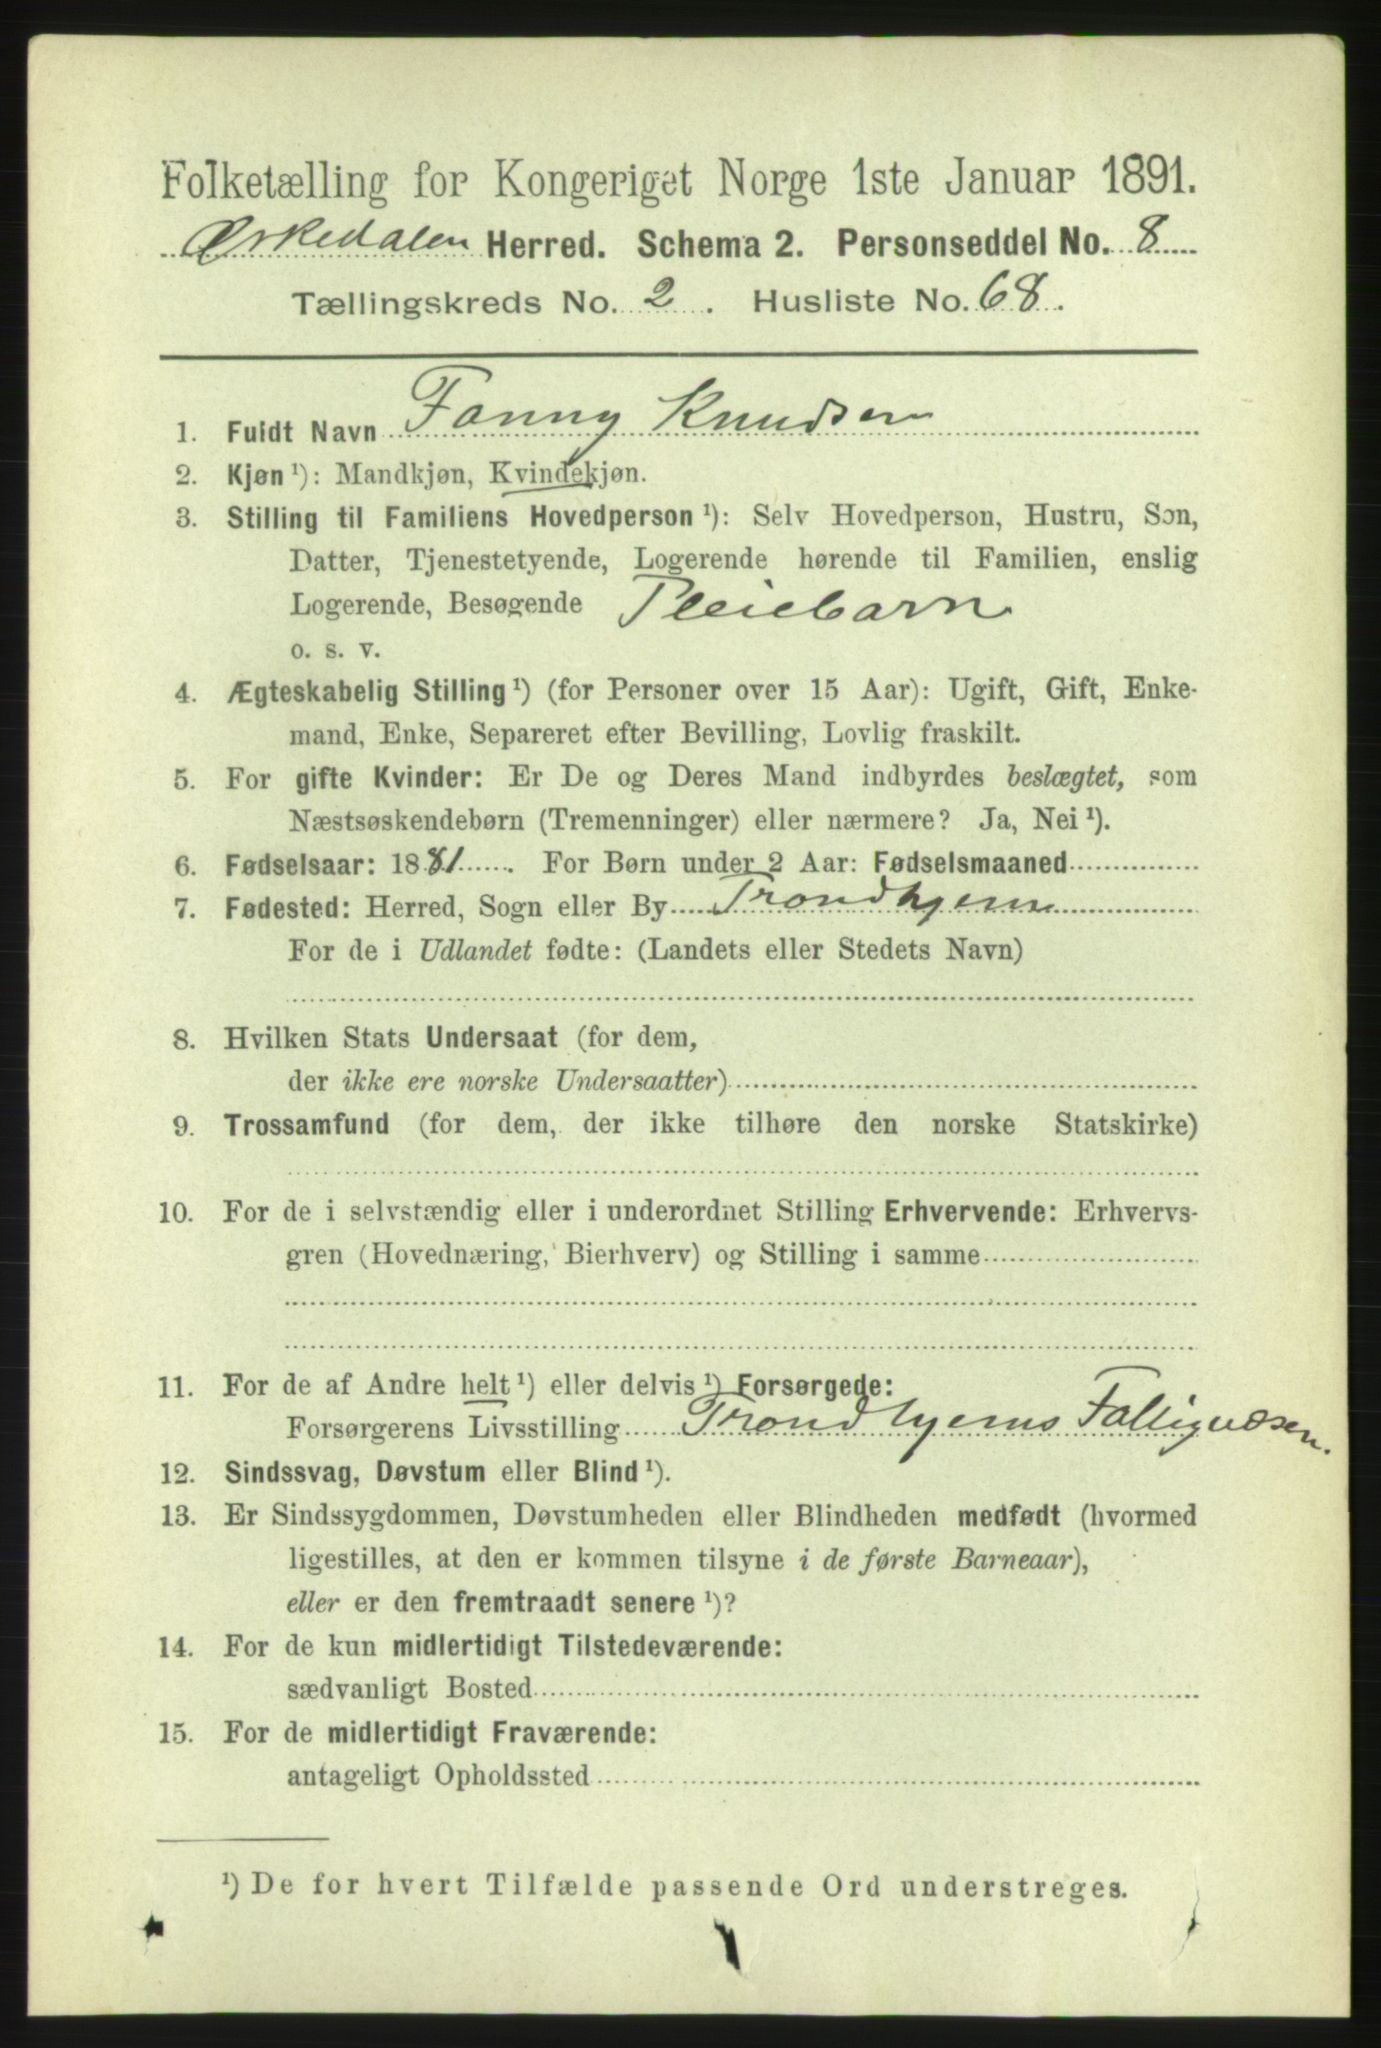 Folketælling for Kongeriget Norge 1ste Januar 1891.
Ørkedalen Herred. Schema 2. Personseddel No. 8
Tællingskreds No. 2. Husliste No. 68.
1. Fuldt Navn Fanny Knudsen
2. Kjøn ¹): Mandkjøn, Kvindekjøn.
3. Stilling til Familiens Hovedperson ¹): Selv Hovedperson, Hustru, Søn,
Datter, Tjenestetyende, Logerende hørende til Familien, enslig
Logerende, Besøgende Pleiebarn
o. s. v.
4. Ægteskabelig Stilling ¹) (for Personer over 15 Aar): Ugift, Gift, Enke-
mand, Enke, Separeret efter Bevilling, Lovlig fraskilt.
5. For gifte Kvinder: Er De og Deres Mand indbyrdes beslægtet, som
Næstsøskendebørn (Tremenninger) eller nærmere? Ja, Nei ¹).
6. Fødselsaar: 1881. For Børn under 2 Aar: Fødselsmaaned
7. Fødested: Herred, Sogn eller By Trondhjem
For de i Udlandet fødte: (Landets eller Stedets Navn)
8. Hvilken Stats Undersaat (for dem,
der ikke ere norske Undersaatter)
9. Trossamfund (for dem, der ikke tilhøre den norske Statskirke)
10. For de i selvstændig eller i underordnet Stilling Erhvervende: Erhvervs-
gren (Hovednæring, Bierhverv) og Stilling i samme
11. For de af Andre helt ¹) eller delvis ¹) Forsørgede:
Forsørgerens Livsstilling Trondhjems Fattigvæsen.
12. Sindssvag, Døvstum eller Blind ¹).
13. Er Sindssygdommen, Døvstumheden eller Blindheden medfødt (hvormed
ligestilles, at den er kommen tilsyne i de første Barneaar),
eller er den fremtraadt senere ¹)?
14. For de kun midlertidigt Tilstedeværende:
sædvanligt Bosted
15. For de midlertidigt Fraværende:
antageligt Opholdssted
¹) De for hvert Tilfælde passende Ord understreges.